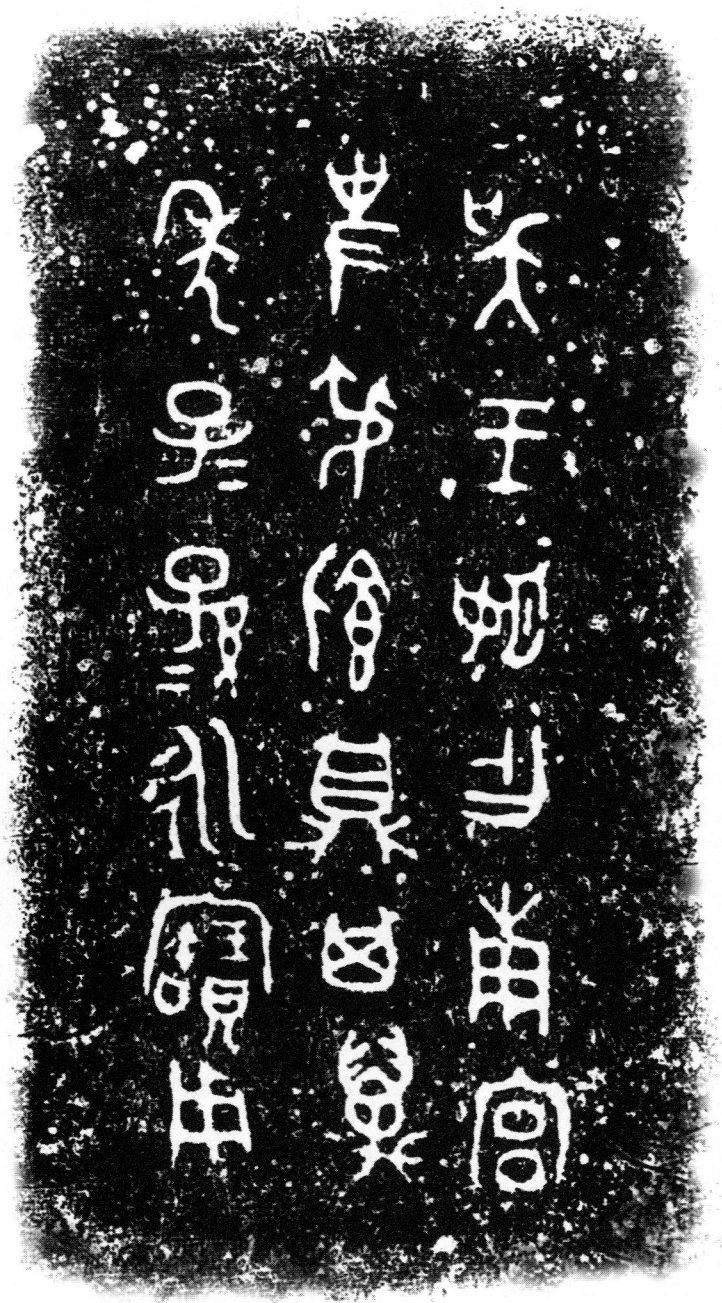 吳王姬乍南宮
史弔飤鼎其萬
年子=孫=永寶用